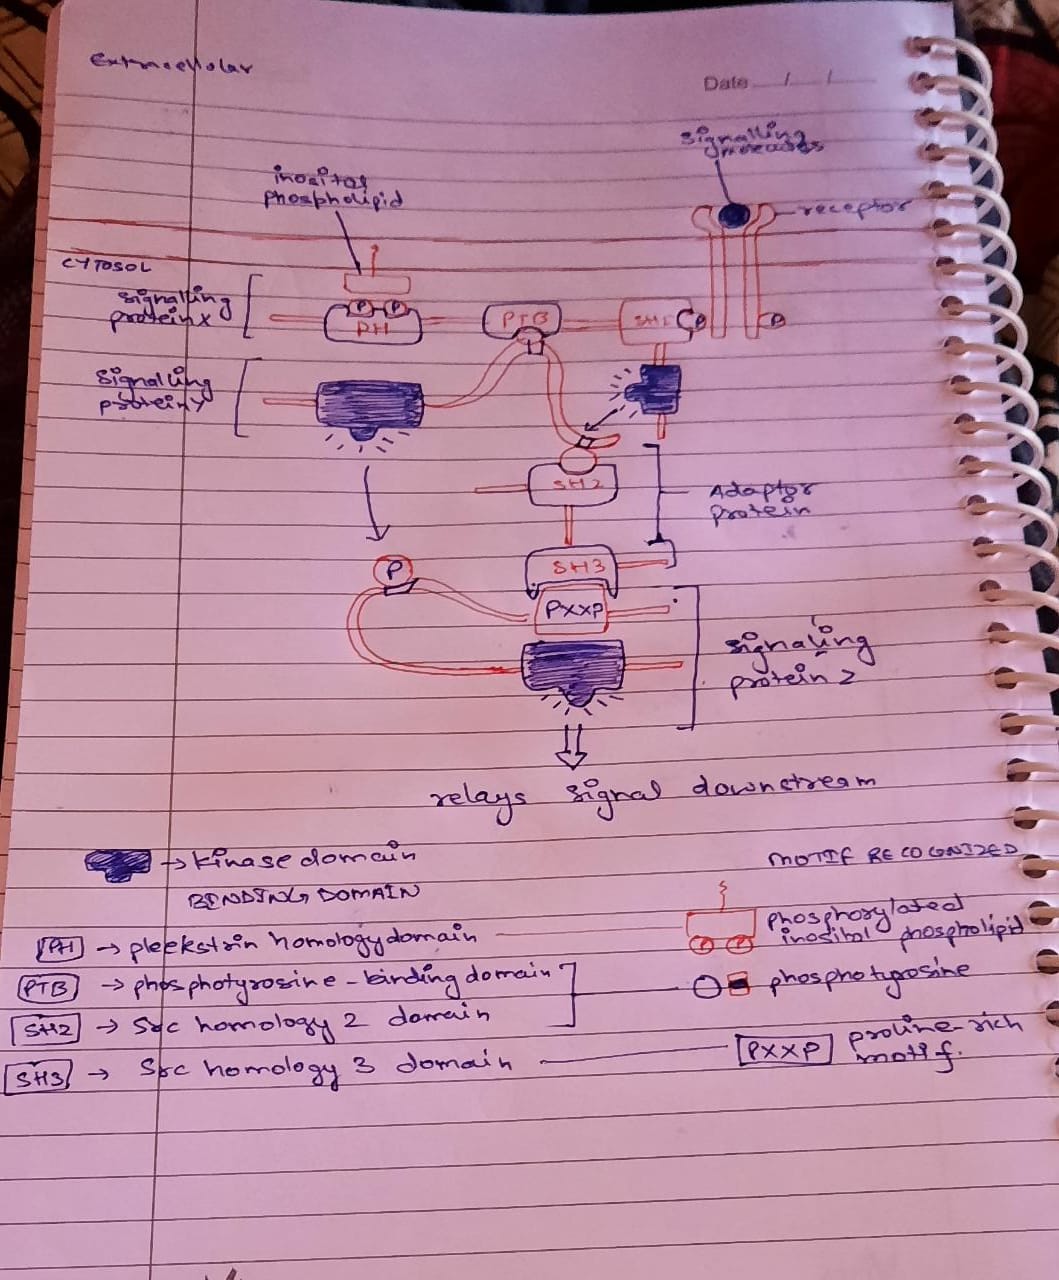 Extracellular
Date / /
signalling
molecules
inositol
phospholipid
receptor
CYTOSOL
signalling
protein X
P P
PH
PTB
SH2
P
P
signalling
protein Y
SH2
Adaptor
protein
P
SH3
PXXP
signaling
protein Z
relays signal downstream
→ kinase domain
MOTIF RECOGNIZED
BINDING DOMAIN
PH → pleekstrin homology domain
phosphorylated
inositol phospholipid
PTB → phosphotyrosine-binding domain
phosphotyrosine
SH2 → Src homology 2 domain
SH3 → Src homology 3 domain
PXXP proline-rich
motif.